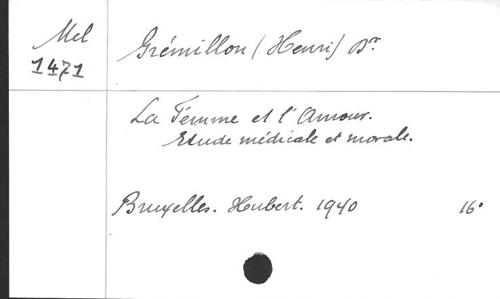 Mel
1471
Grémillon (Henri) Dr
La Femme et l'Amour.
Etude médicale et morale.
Bruxelles. Hubert. 1940 16°